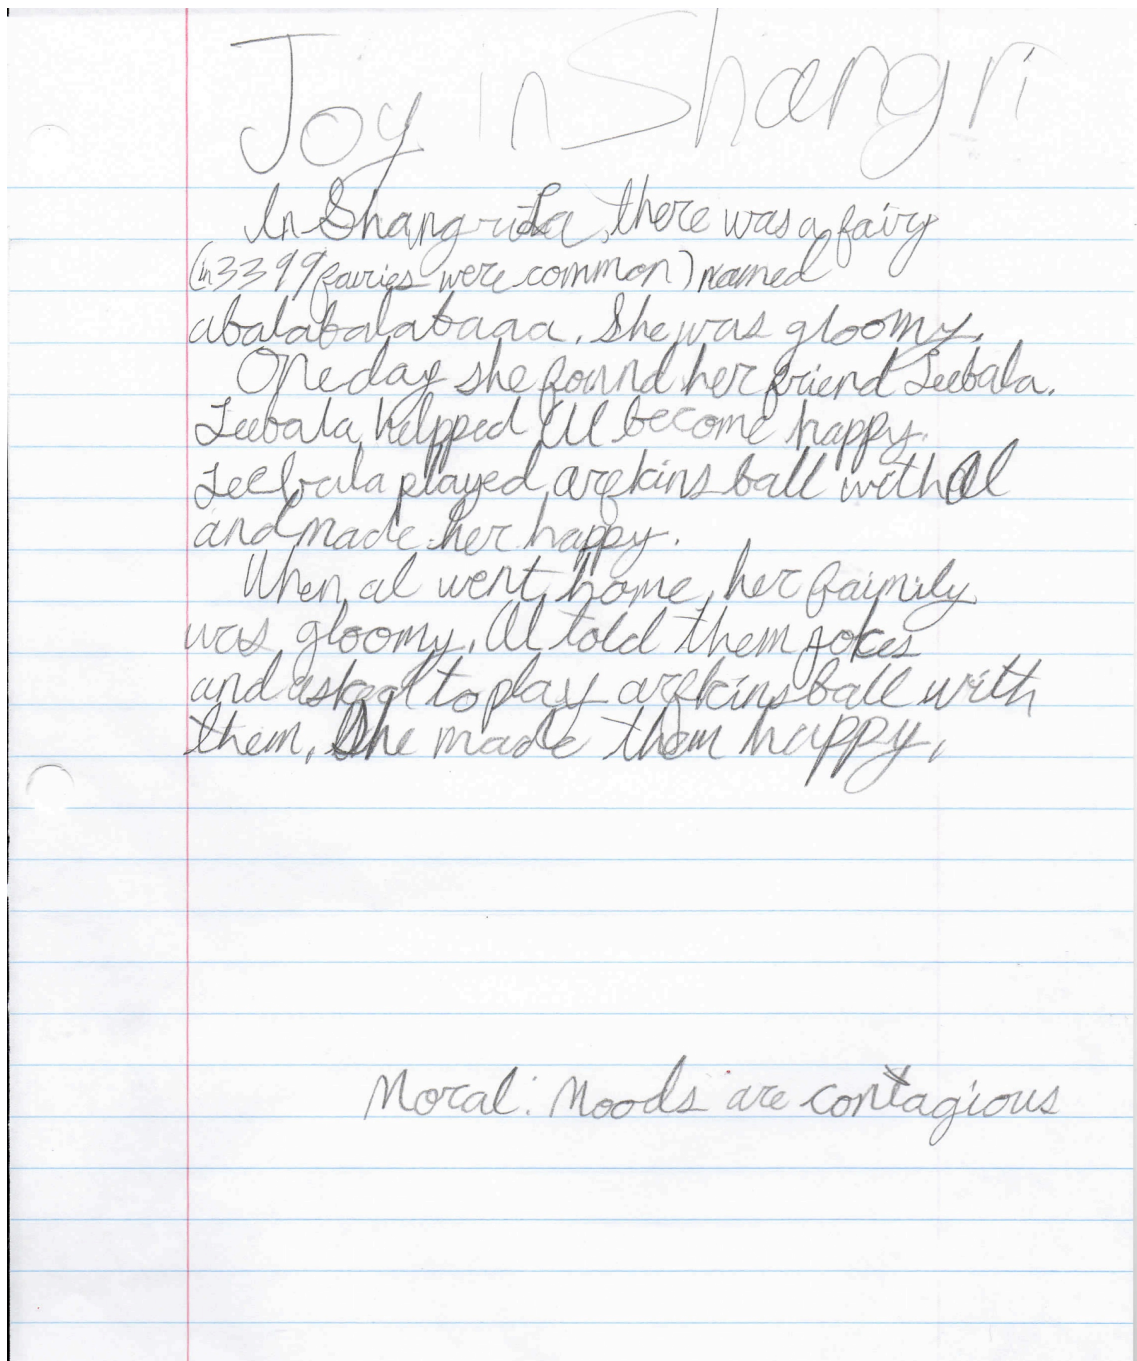 Joy in Shangri
In Shangri La, there was a fairy
(in 3399 fairies were common) named
abalabalabaaa. She was gloomy.
One day she found her friend Leebala.
Leebala helpped Al become happy.
Leebala played arfkins ball with Al
and made her happy.
When al went home, her faimily
was gloomy. Al told them jokes
and asked to play arfkins ball with
them. She made them happy.
Moral: Moods are contagious